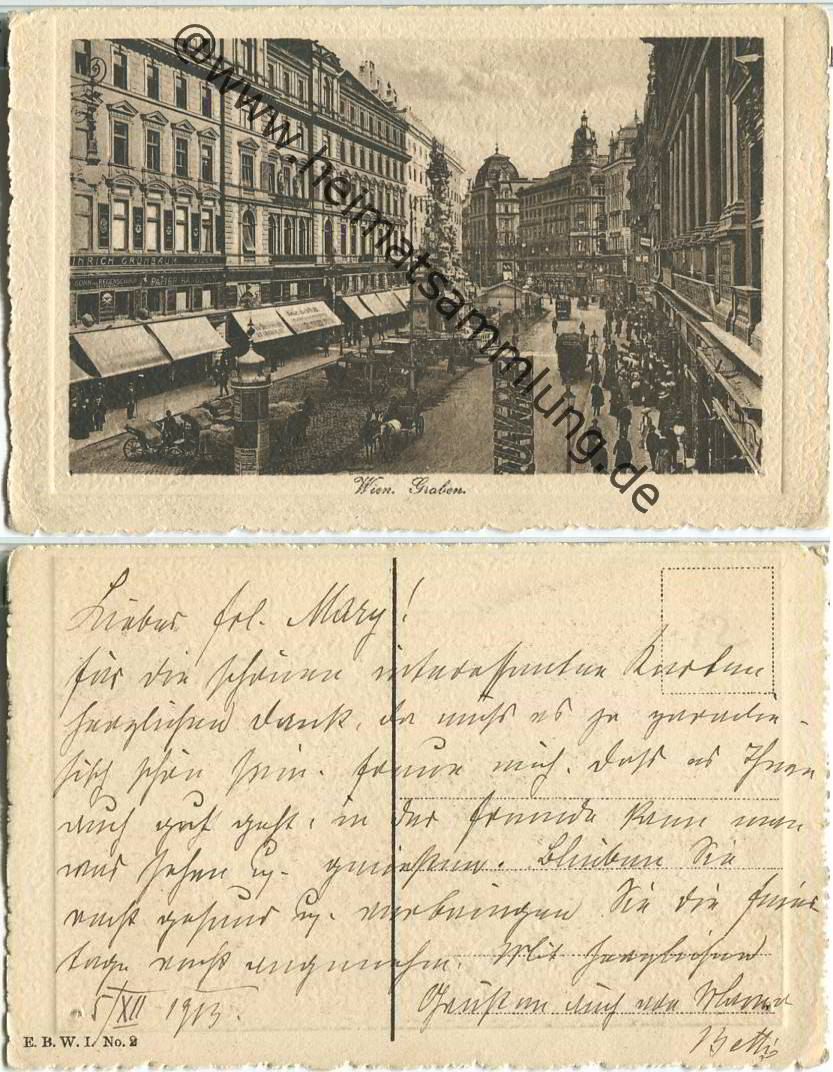 @www.heimatsammlung.de
INRICH GRÜNBAUM
Wien. Graben.
Liebes Frl. Mary!
für die schönen interessanten Karten
herzlichen Dank, da muß es ja paradie-
sisch schön sein. Freue mich, daß es Ihnen
auch gut geht, in der Fremde kann man
was sehen u. genießen. Bleiben Sie
recht gesund u. verbringen Sie die Feier
tage recht angenehm. Mit herzlichen
Grüßen auch von Mama
Betti
5/XII 1913.
E. B. W. I. No. 2